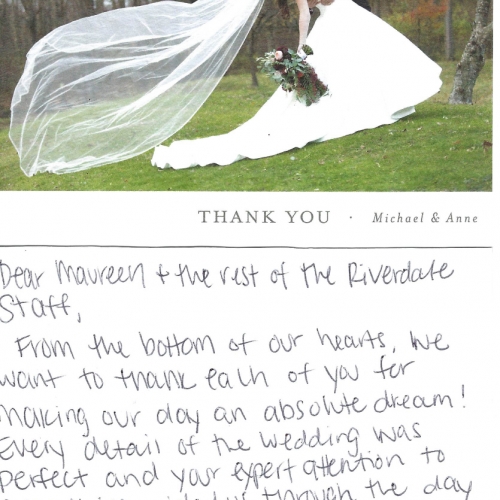 THANK YOU · Michael & Anne
Dear Maureen + the rest of the Riverdale
Staff,
From the bottom of our hearts, we
want to thank each of you for
making our day an absolute dream!
Every detail of the wedding was
perfect and your expert attention to
through the day